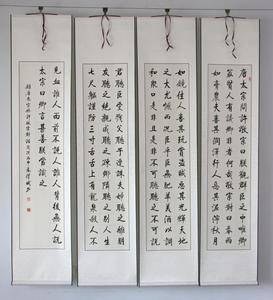 唐太宗問許敬宗曰朕觀群臣之中唯卿
最賢人有議卿非者何哉敬宗對曰春雨
如膏農夫喜其潤澤行人惡其泥濘秋月
如鏡佳人喜其玩賞盜賊惡其光輝天地
之大尤憾而況臣乎臣無肥羊美酒以調
和眾口是非且是非不可聽聽之不可說
君聽臣受戮父聽子遭誅夫婦聽之離朋
友聽之絕親戚聽之疎鄉隣聽之別人生
七尺軀謹防三寸舌舌上有龍泉殺人不
見血誰人面前不說人誰人背後無人說
太宗曰卿言甚善朕當識之
錄唐太宗與許敬宗對話